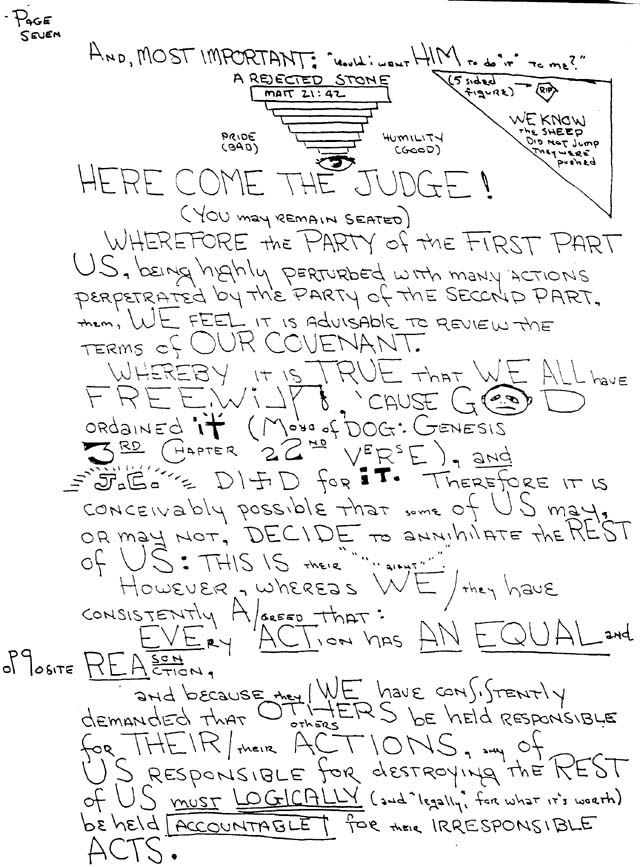 PAGE
SEVEN
AND, MOST IMPORTANT: "Would i want HIM to do "it" to me?"
A REJECTED STONE
MATT 21:42
(5 sided
figure)
RIP
WE KNOW
the SHEEP
DID NOT Jump
They were
pushed
PRIDE
(BAD)
HUMILITY
(GOOD)
HERE COME THE JUDGE!
(YOU may REMAIN SEATED)
WHEREFORE the PARTY of the FIRST PART
US, being highly PERTURBED with many ACTIONS
PERPETRATED by the PARTY of the SECOND PART,
them, WE FEEL IT IS ADVISABLE TO REVIEW the
TERMS of OUR COVENANT.
WHEREBY IT IS TRUE that WE ALL have
FREE WILL, 'CAUSE GOD
ORDAINED it (of DOG: GENESIS
3RD CHAPTER 22ND VERSE), and
J.C. DIED for iT. THEREFORE IT IS
CONCEIVABLY possible that some of US may,
OR may NOT, DECIDE to annihilate the REST
of US: THIS IS their """"RIGHT""""
HOWEVER, whereas WE/they have
CONSISTENTLY A/GREED THAT:
EVERy ACTion HAS AN EQUAL and
opposite REASON
CTION,
and because they/WE have consistently
demanded that OTHERS be held RESPONSIBLE
others
for THEIR/their ACTIONS, any of
US RESPONSIBLE for destroying the REST
of US must LOGICALLY (and "legally", for what it's worth)
be held ACCOUNTABLE for their IRRESPONSIBLE
ACTS.